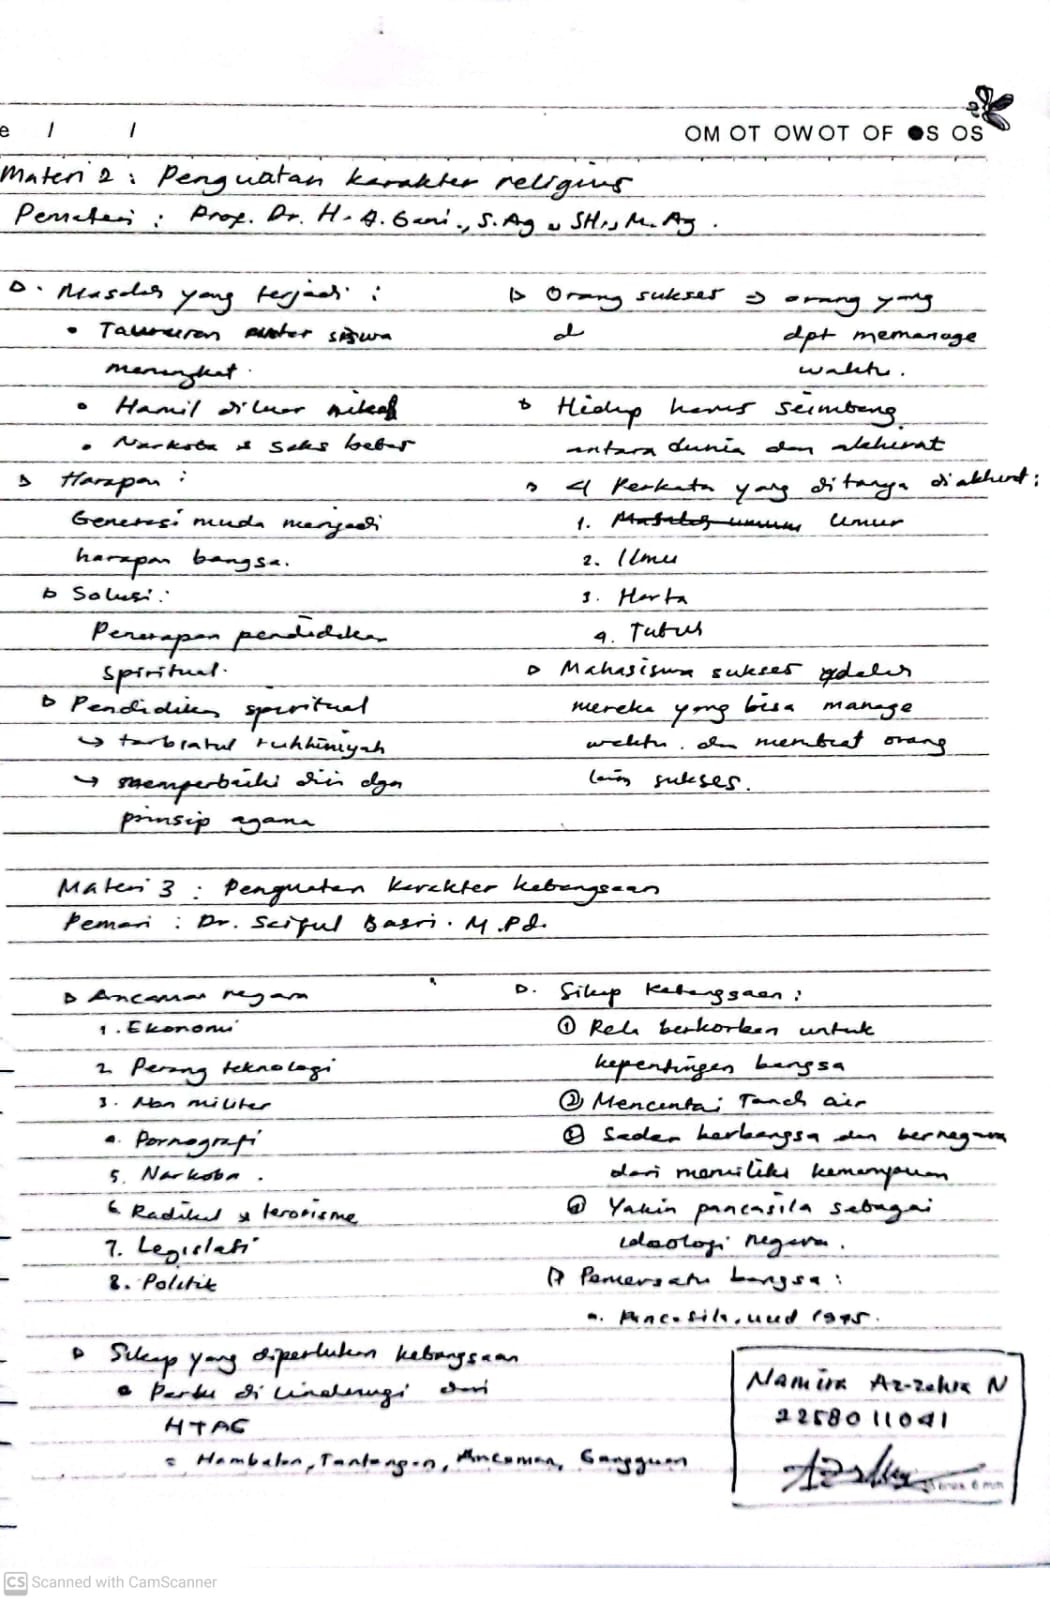 e / /
OM OT OWOT OF ●S OS
Materi 2 : Penguatan karakter religius
Pemateri : Prof. Dr. H. A. Gani., S.Ag, SH., M.Ag.
Masalah yang terjadi :
• Tawuran antar siswa
meningkat.
• Hamil diluar nikah
• Narkoba & seks bebas
Harapan :
Generasi muda menjadi
harapan bangsa.
Solusi :
Penerapan pendidikan
spiritual.
Pendidikan spiritual
→ tarbiatul ruhhiniyah
→ memperbaiki diri dgn
prinsip agama
Orang sukses ⇒ orang yang
d dpt memanage
waktu.
Hidup harus seimbang
antara dunia dan akhirat
4 Perkata yang ditanya diakhirat :
1. Masalah umum Umur
2. Ilmu
3. Harta
4. Tubuh
Mahasiswa sukses adalah
mereka yang bisa manage
waktu. dan membuat orang
lain sukses.
Materi 3 : Penguatan karakter kebangsaan
Pemari : Dr. Saiful Basri. M.Pd.
Ancaman negara
1. Ekonomi
2. Perang teknologi
3. Non militer
4. Pornografi
5. Narkoba.
6. Radikal & terorisme
7. Legislatif
8. Politik
Sikap yang diperlukan kebangsaan
• Perlu di lindungi dari
HTAG
= Hambatan, Tantangan, Ancaman, Gangguan
Sikap Kebangsaan :
① Rela berkorban untuk
kepentingan bangsa
② Mencintai Tanah air
③ Sadar berbangsa dan bernegara
dari memiliki kemampuan
④ Yakin pancasila sebagai
ideologi negara.
Pemersatu bangsa :
a. Pancasila, uud 1945.
Namira Az-zahra N
2258011041
CS Scanned with CamScanner